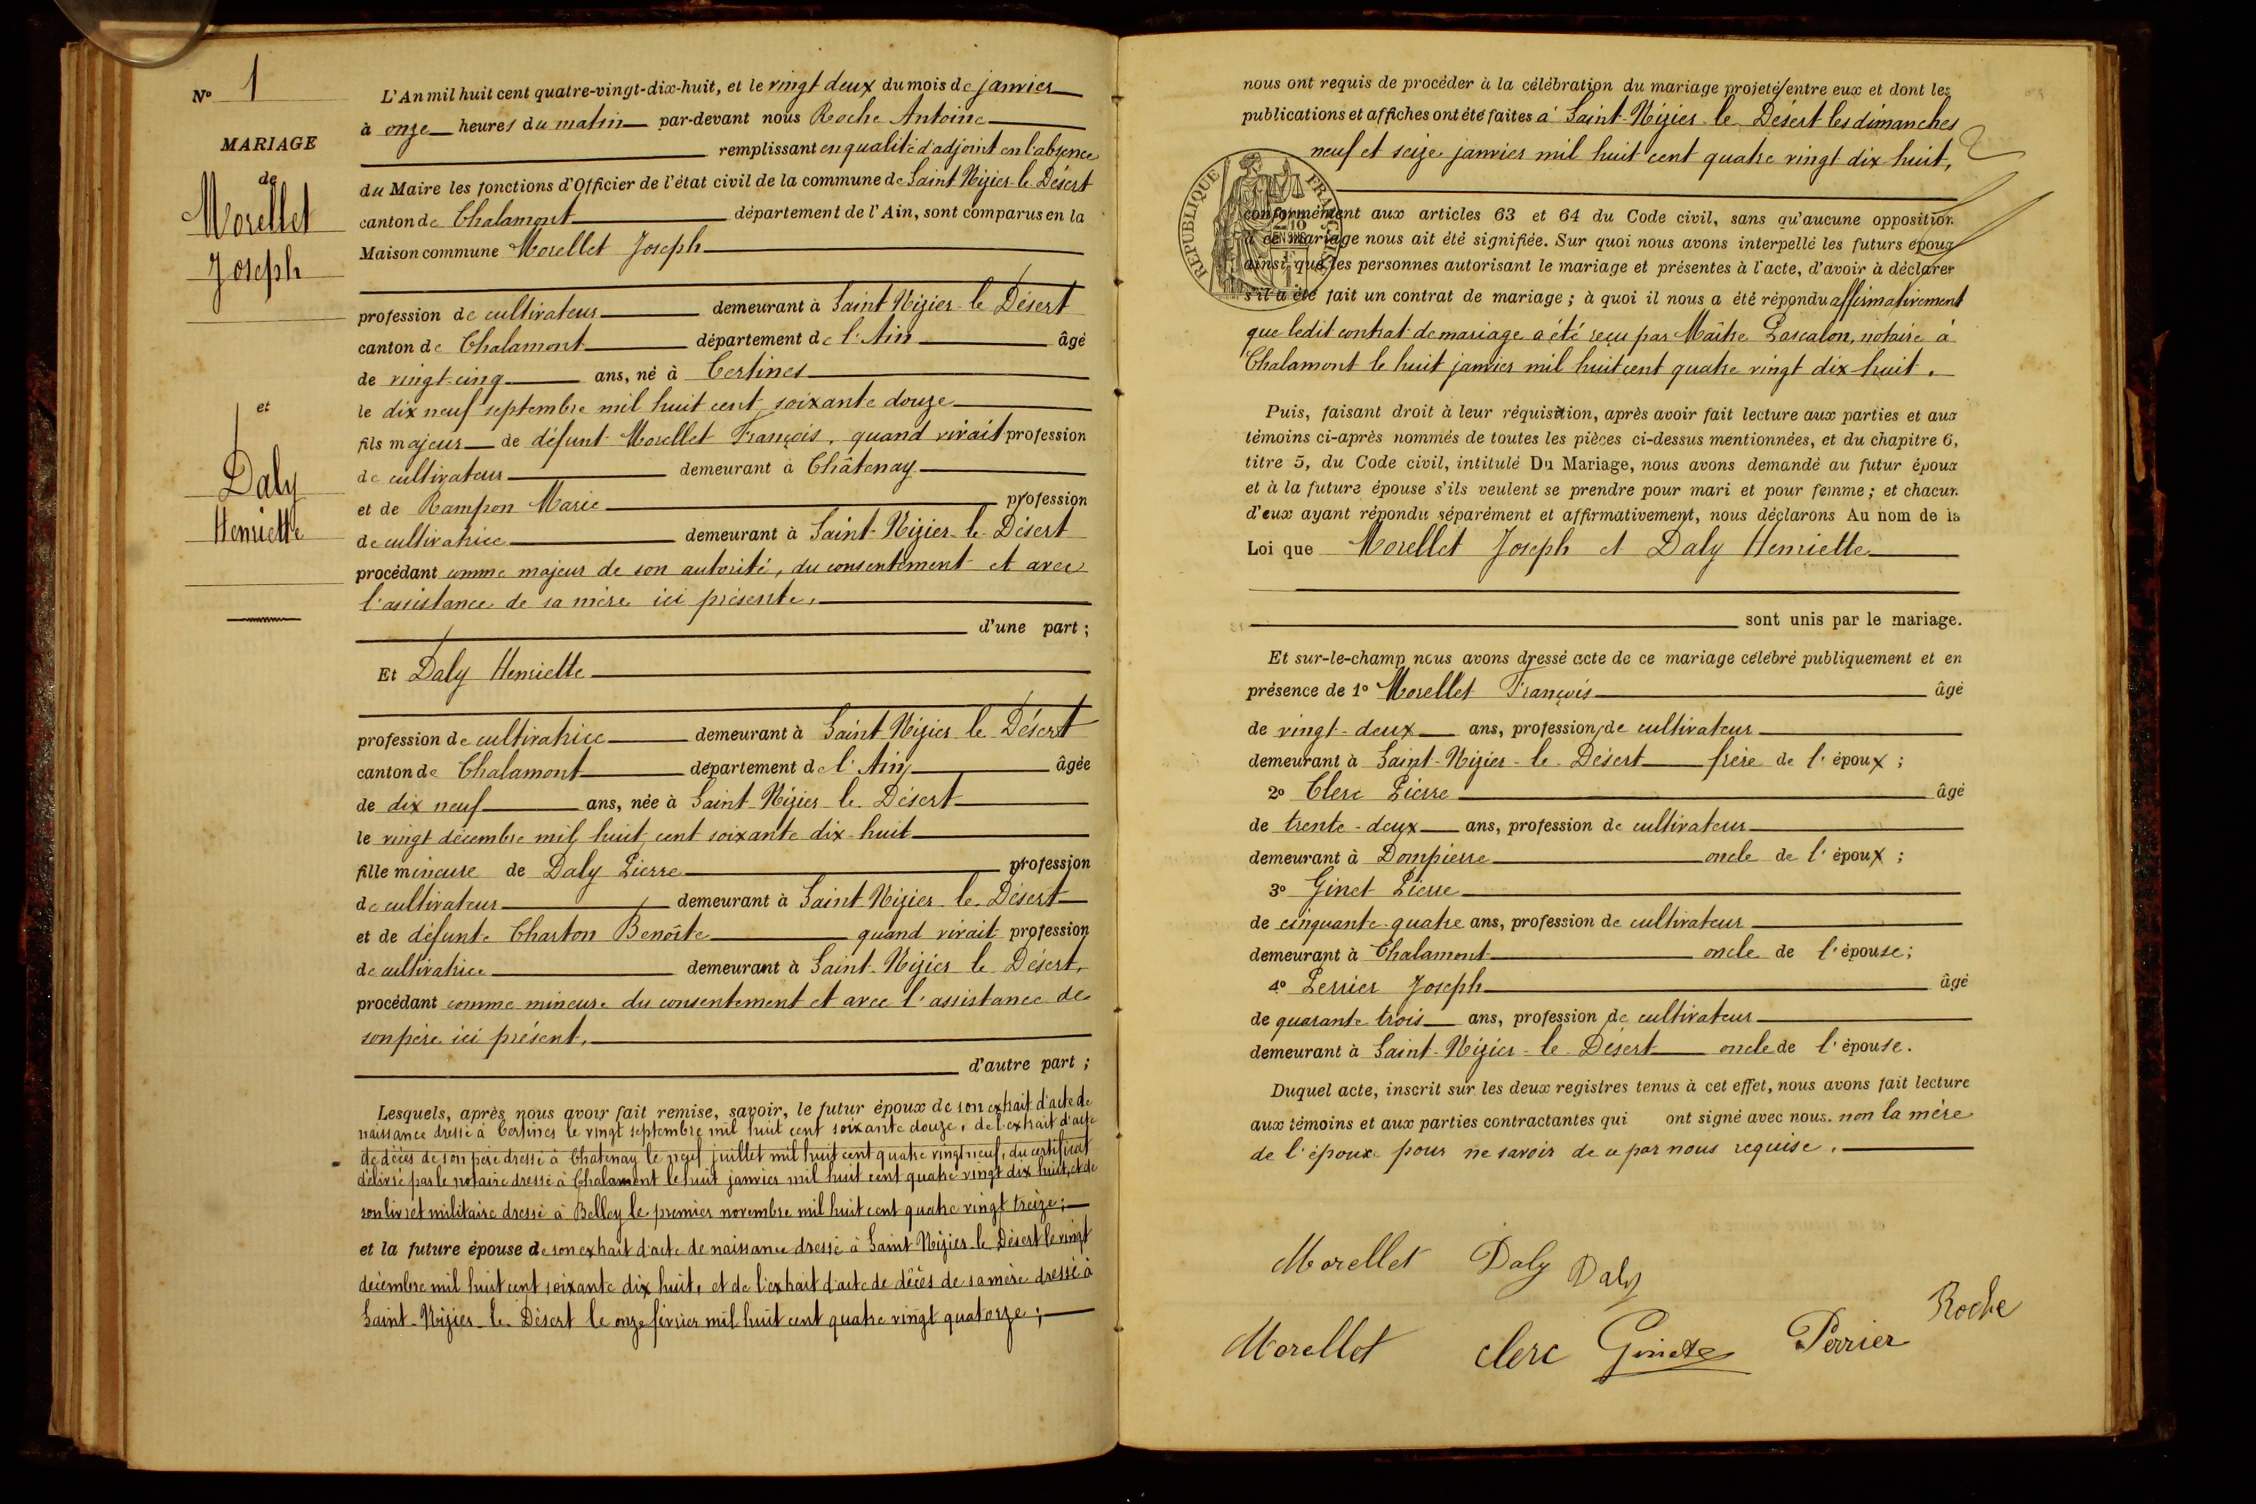 N° 1
MARIAGE
de
Morellet
Joseph
et
Daly
Henriette
L'An mil huit cent quatre-vingt-dix-huit, et le vingt deux du mois de janvier
à onze heures du matin par-devant nous Roche Antoine
remplissant en qualité d'adjoint en l'absence
du Maire les fonctions d'Officier de l'état civil de la commune de Saint Nizier le Désert
canton de Chalamont département de l'Ain, sont comparus en la
Maison commune Morellet Joseph
profession de cultivateur demeurant à Saint Nizier le Désert
canton de Chalamont département de l'Ain âgé
de vingt-cinq ans, né à Certines
le dix neuf septembre mil huit cent soixante douze
fils majeur de défunt Morellet François, quand vivait profession
de cultivateur demeurant à Châtenay
et de Rampon Marie profession
de cultivatrice demeurant à Saint-Nizier-le-Désert
procédant comme majeur de son autorité, du consentement et avec
l'assistance de sa mère ici présente,
d'une part ;
Et Daly Henriette
profession de cultivatrice demeurant à Saint-Nizier le Désert
canton de Chalamont département de l'Ain âgée
de dix neuf ans, née à Saint-Nizier le Désert
le vingt décembre mil huit cent soixante dix-huit
fille mineure de Daly Pierre profession
de cultivateur demeurant à Saint-Nizier le Désert
et de défunte Charton Benoîte quand vivait profession
de cultivatrice demeurant à Saint-Nizier le Désert,
procédant comme mineure du consentement et avec l'assistance de
son père ici présent,
d'autre part ;
Lesquels, après nous avoir fait remise, savoir, le futur époux de son extrait d'acte de
naissance dressé à Certines le vingt septembre mil huit cent soixante douze, de l'extrait d'acte
de décès de son père dressé à Chatenay le neuf juillet mil huit cent quatre vingt neuf, du certificat
délivré par le notaire dressé à Chalamont le huit janvier mil huit cent quatre vingt dix huit, et de
son livret militaire dressé à Belley le premier novembre mil huit cent quatre vingt treize ;
et la future épouse de son extrait d'acte de naissance dressé à Saint Nizier le Désert le vingt
décembre mil huit cent soixante dix huit, et de l'extrait d'acte de décès de sa mère dressé à
Saint-Nizier-le-Désert le onze février mil huit cent quatre vingt quatorze ;
nous ont requis de procéder à la célébration du mariage projeté entre eux et dont les
publications et affiches ont été faites à Saint-Nizier-le-Désert les dimanches
neuf et seize janvier mil huit cent quatre vingt dix huit,
RÉPUBLIQUE FRANÇAISE
conformément aux articles 63 et 64 du Code civil, sans qu'aucune opposition
à ce mariage nous ait été signifiée. Sur quoi nous avons interpellé les futurs époux
ainsi que les personnes autorisant le mariage et présentes à l'acte, d'avoir à déclarer
s'il a été fait un contrat de mariage ; à quoi il nous a été répondu affirmativement
que ledit contrat de mariage a été reçu par Maître Lascalon, notaire à
Chalamont le huit janvier mil huit cent quatre vingt dix-huit.
Puis, faisant droit à leur réquisition, après avoir fait lecture aux parties et aux
témoins ci-après nommés de toutes les pièces ci-dessus mentionnées, et du chapitre 6,
titre 5, du Code civil, intitulé Du Mariage, nous avons demandé au futur époux
et à la future épouse s'ils veulent se prendre pour mari et pour femme ; et chacun
d'eux ayant répondu séparément et affirmativement, nous déclarons Au nom de la
Loi que Morellet Joseph et Daly Henriette
sont unis par le mariage.
Et sur-le-champ nous avons dressé acte de ce mariage célébré publiquement et en
présence de 1° Morellet François âgé
de vingt-deux ans, profession de cultivateur
demeurant à Saint-Nizier-le-Désert frère de l'époux ;
2° Clerc Pierre âgé
de trente-deux ans, profession de cultivateur
demeurant à Dompierre oncle de l'époux ;
3° Ginet Pierre
de cinquante-quatre ans, profession de cultivateur
demeurant à Chalamont oncle de l'épouse ;
4° Perrier Joseph âgé
de quarante trois ans, profession de cultivateur
demeurant à Saint-Nizier-le-Désert oncle de l'épouse.
Duquel acte, inscrit sur les deux registres tenus à cet effet, nous avons fait lecture
aux témoins et aux parties contractantes qui ont signé avec nous. non la mère
de l'époux pour ne savoir de ce par nous requise.
Morellet Daly Daly
Morellet clerc Ginet Perrier Roche